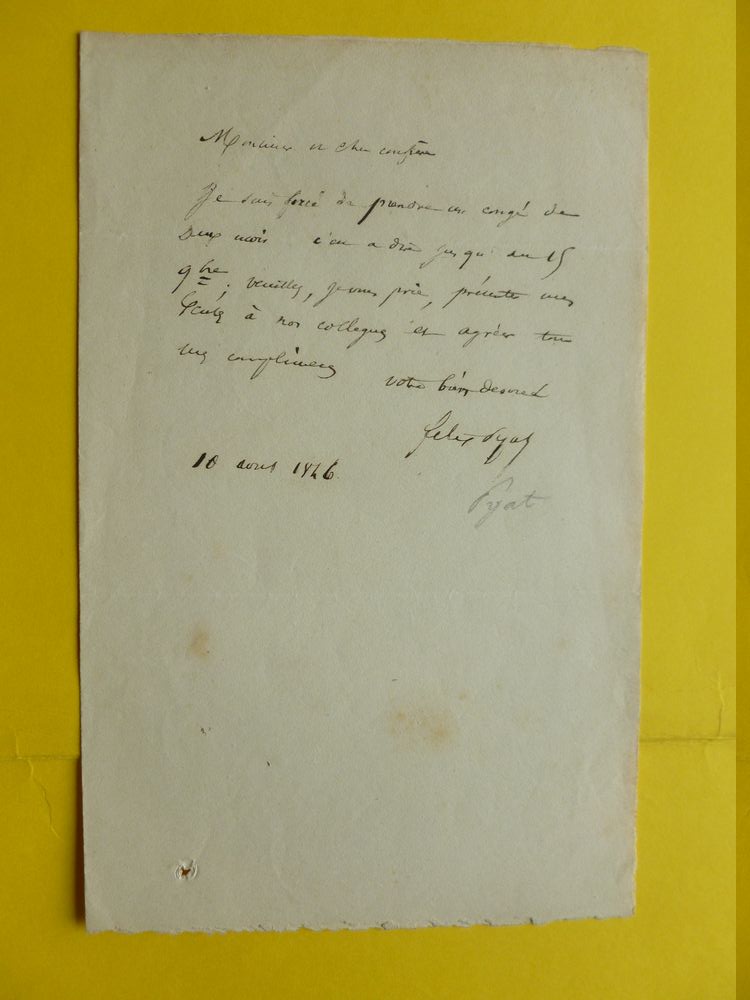 Monsieur et cher confrère
Je suis forcé de prendre un congé de
Deux mois c'est a dire jusqu'au 15
9bre; veuillez, je vous prie, présenter mes
à nos collegues et agréer tous
mes compliments
votre bien devoué
felix Pyat
10 aout 1846
Pyat